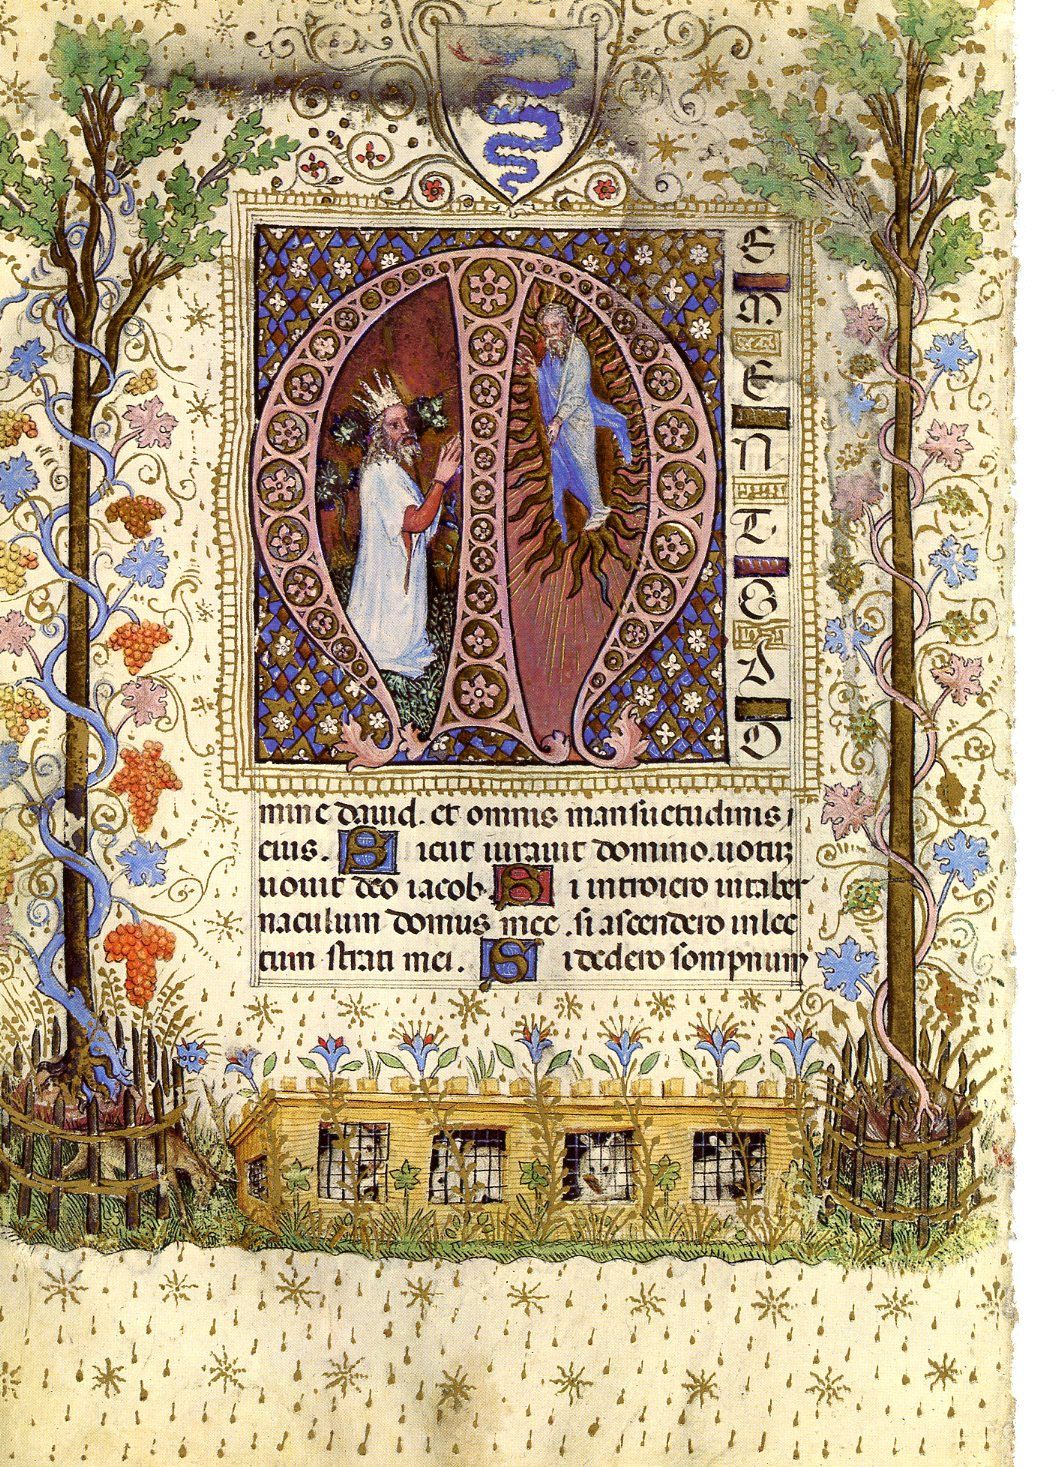 M
E
M
E
N
T
O
D
O
mine dauid. et omnis mansuetudinis
eius. Sicut iurauit domino.uotuʒ
uouit deo iacob. Si introiero intaber
naculum domus mee .si ascendero inlec
tum strati mei. Si dedero sompnum